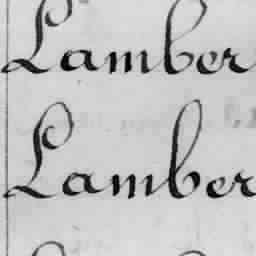 Lamber
Lamber